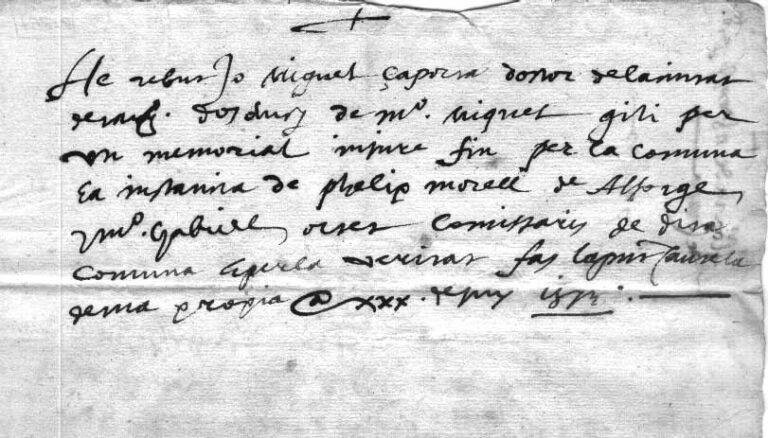 He rebut Jo Miquel Çaporta doctor de la ciutat
de dos ducs de mº. Miquel gili per
un memorial in jure fiu per la comuna
ea instancia de phelip morell de Alforge
y mº. Gabriel comissaris de dita
comuna e per la veritat fas la present
de ma propia @ xxx . de